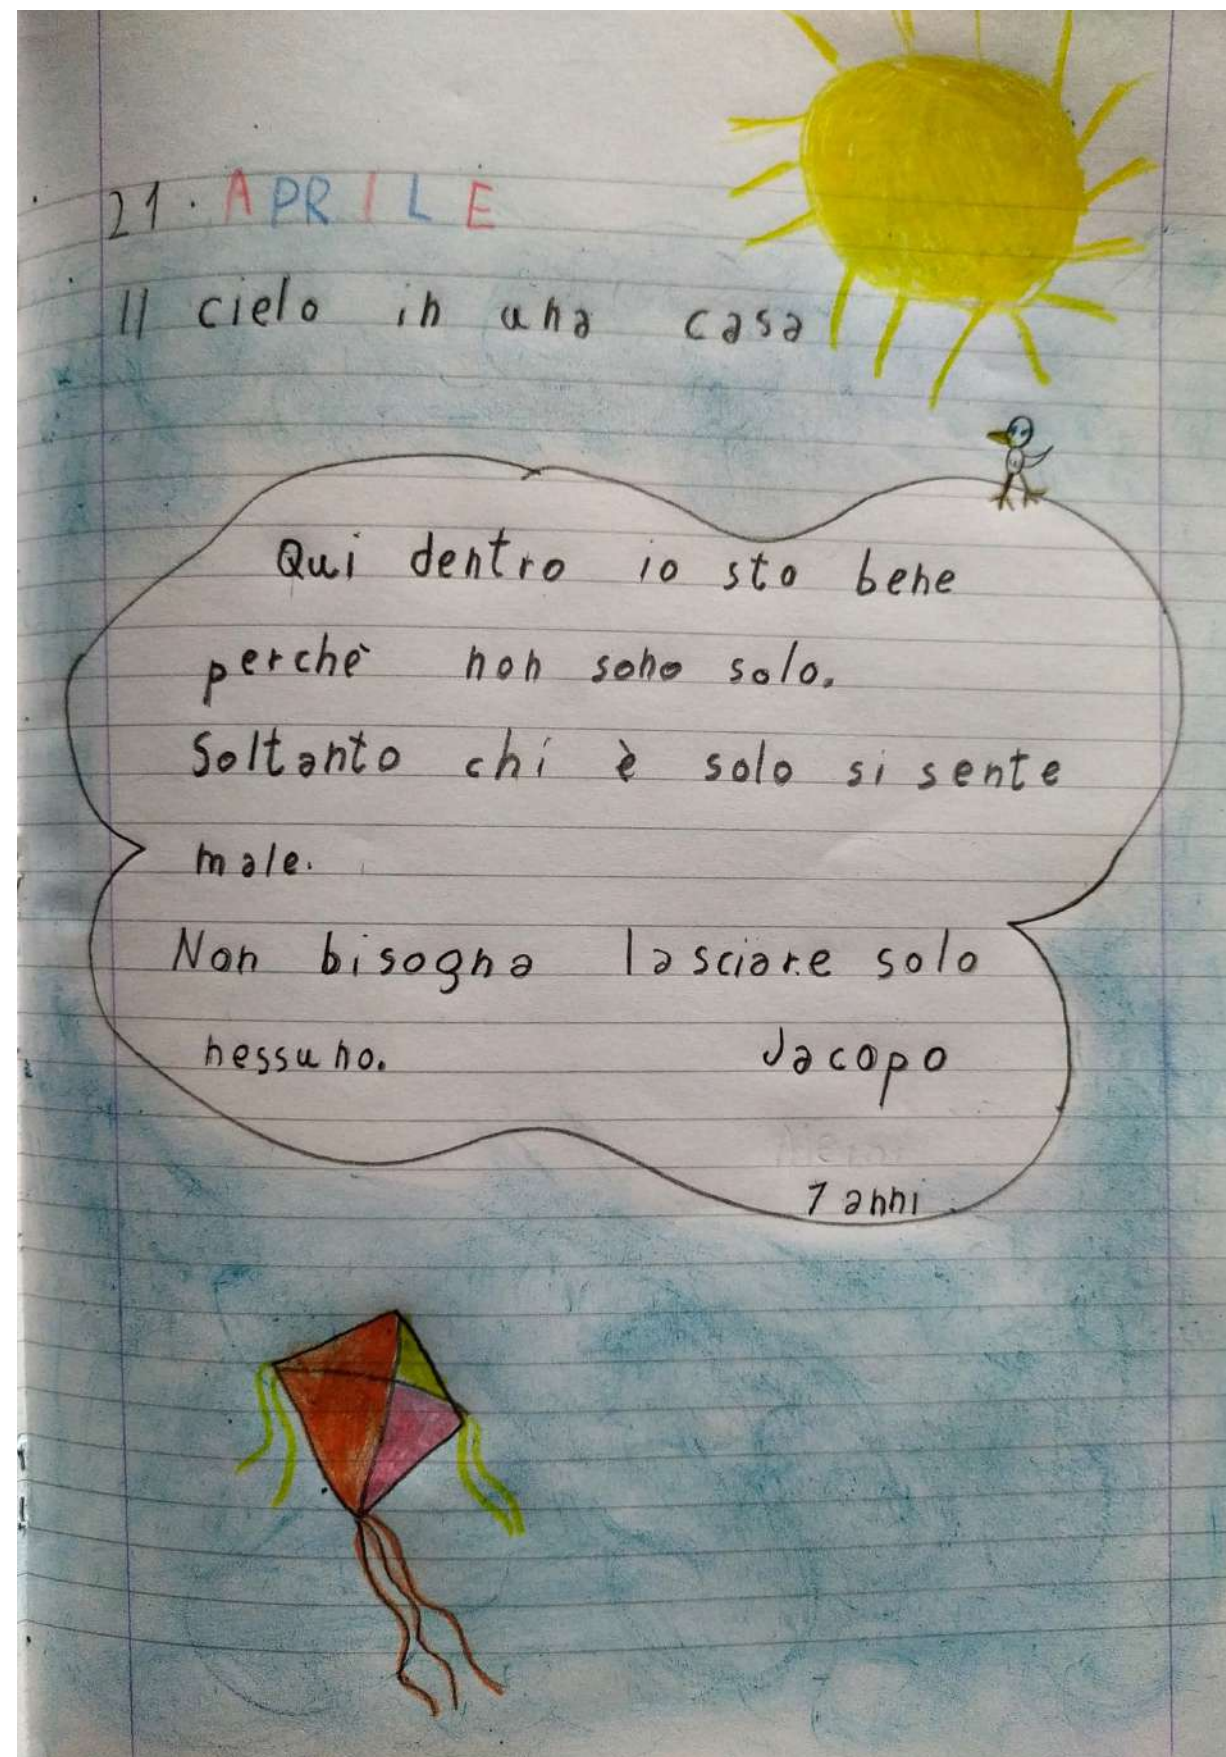 21. APRILE
Il cielo in una casa
Qui dentro io sto bene
perchè non sono solo.
Soltanto chi è solo si sente
male.
Non bisogna lasciare solo
nessuno. Jacopo
7 anni